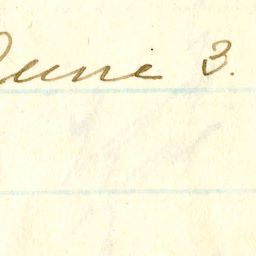 June 3.